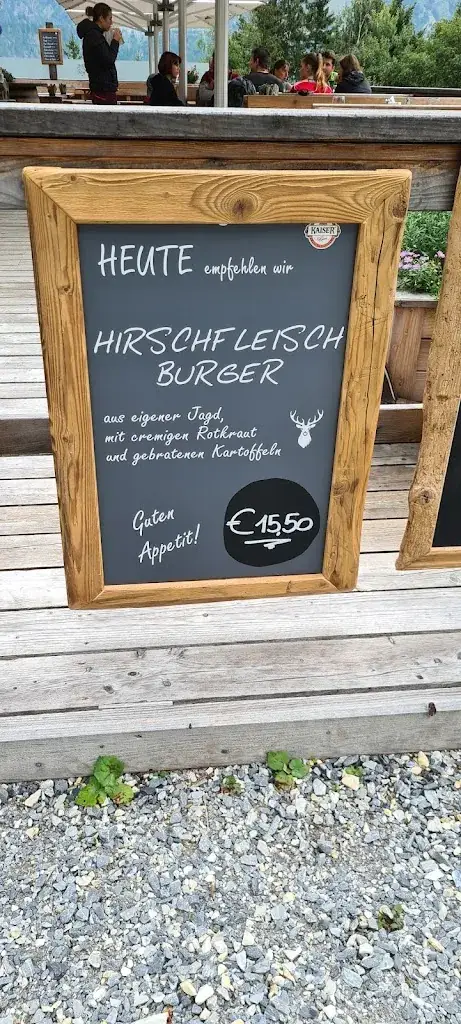 KAISER
HEUTE empfehlen wir
HIRSCHFLEISCH
BURGER
aus eigener Jagd,
mit cremigen Rotkraut
und gebratenen Kartoffeln
Guten
Appetit!
€ 15,50